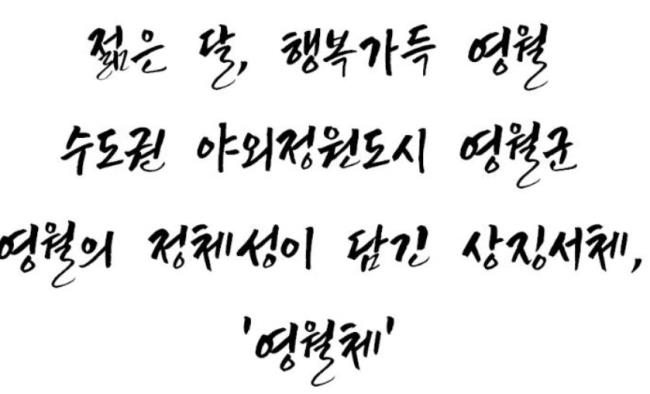 젊은 달, 행복가득 영월
수도권 야외정원도시 영월군
영월의 정체성이 담긴 상징서체,
'영월체'